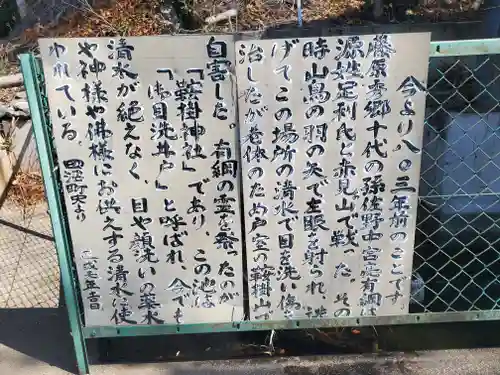 今より八〇三年前のことです
藤原秀郷十代の孫佐野中宮亮有綱は
源姓足利氏と赤見山で戦った。その
時山鳥の羽の矢で左眼を射られ逃
げてこの場所の清水で目を洗い傷を
治したが運俶のため戸室の鞍掛山で
自害した。有綱の霊を祭ったのが
「鞍掛神社」であり、この池は
「御目洗井戸」と呼ばれ、今でも
清水が絶えなく、目や顔洗いの薬水
や神様や佛様にお供えする清水に使
われている。